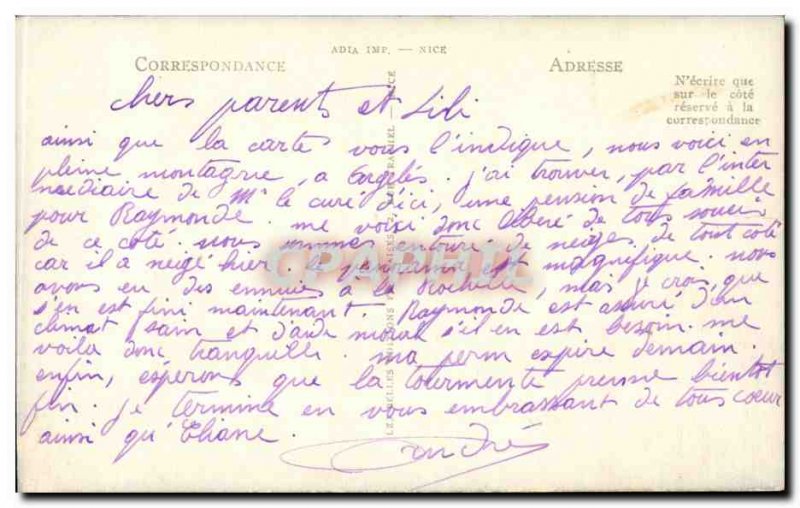 ADIA IMP. — NICE
CORRESPONDANCE
ADRESSE
N'écrire que
sur le côté
réservé à la
correspondance
chers parents et Lili
ainsi que la cartes vous l'indique, nous voici en
pleine montagne, a Argelès. j'ai trouver, par l'inter
mediaire de Mr le curé d'ici, une pension de famille
pour Raymonde. me voici donc libéré de tous soucis
de ce coté. nous sommes entouré de neiges de tout coté
car il a neigé hier. le panorama est magnifique. nous
avons eu des ennuies à la Rochelle, mais je crois que
s'en est fini maintenant. Raymonde est assuré d'un
climat sain et d'aide moral s'il en est besoin. me
voila donc tranquille. ma perm expire demain.
enfin, esperons que la tourmente prenne bientot
fin. je termine en vous embrassant de tous coeur
ainsi qu'Eliane.
André
CPAPHIL